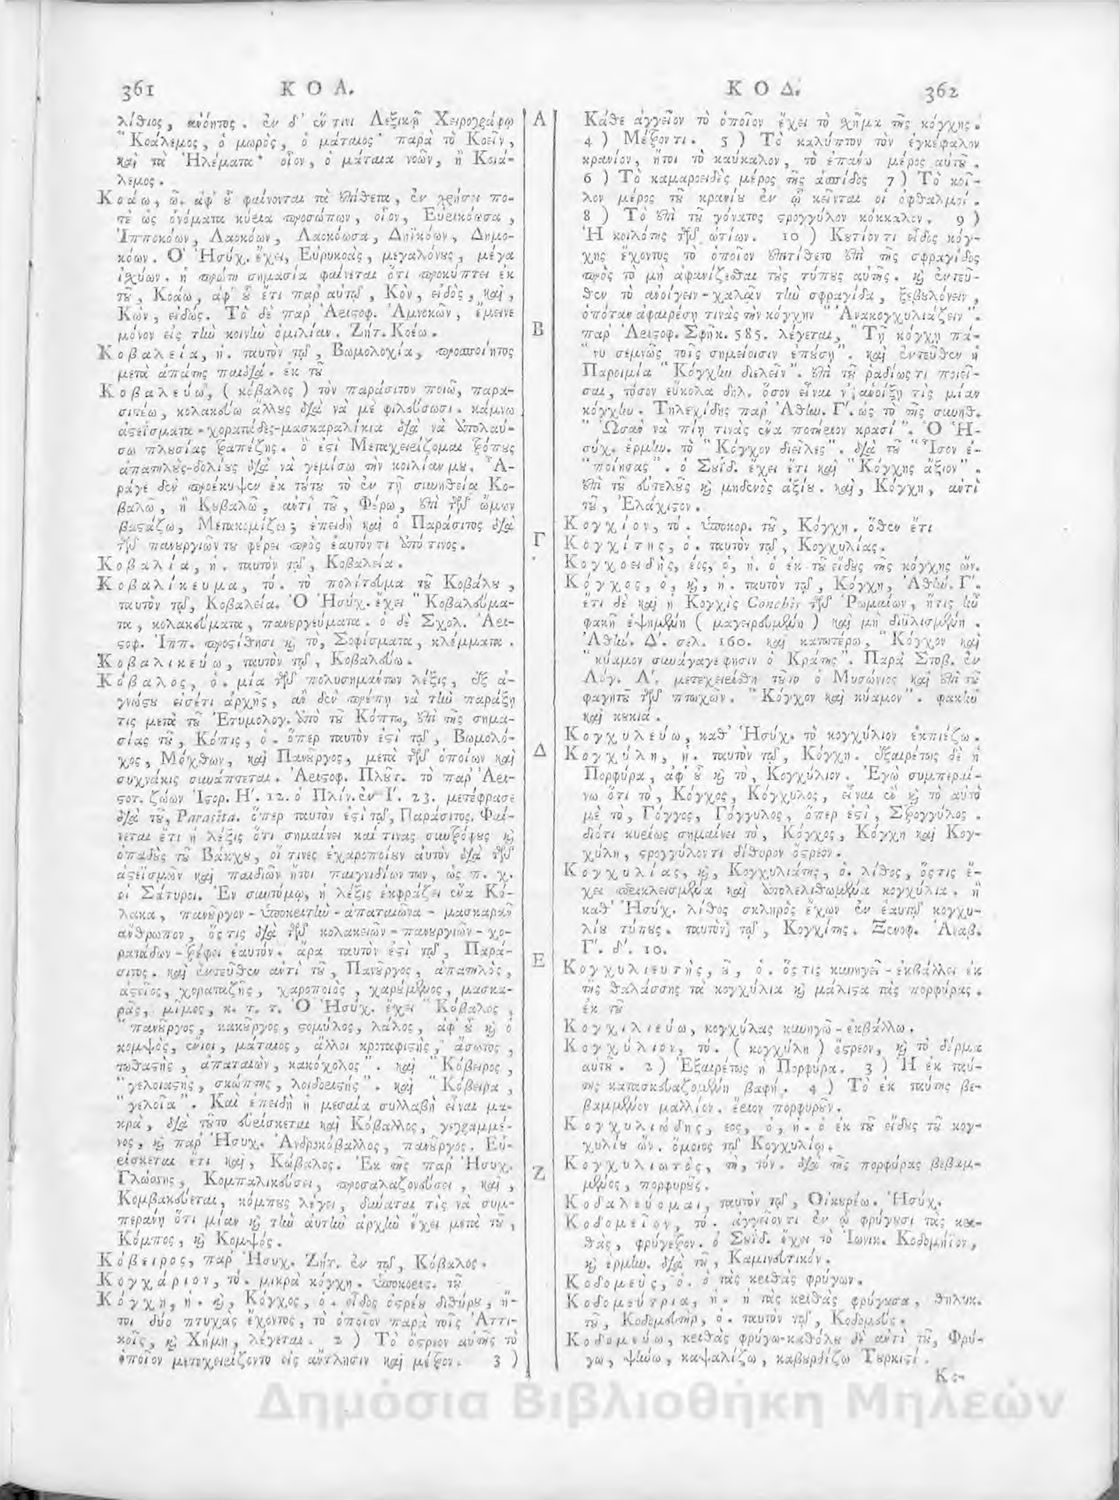 361 Κ Ο Λ.
λίθιος, ἀνόητος. ἐν δ' ἔν τινι Λεξικῷ Χειρογράφῳ
"Κοάλεμος, ὁ μωρός, ὁ μάταιος" παρὰ τὸ Κοεῖν,
καὶ τὰ Ἠλέματα" οἷον, ὁ μάταια νοῶν, ἢ Κοά-
λεμος.
Κοάω, ῶ. ἀφ' οὗ φαίνονται τὰ ἐπίθετα, ἐν χρήσει πο-
τὲ ὡς ὀνόματα κύρια προσώπων, οἷον, Εὐρικόωσα,
Ἱπποκόων, Λαοκόων, Λαοκόωσα, Δηϊκόων, Δημο-
κόων. Ὁ Ἡσύχ. ἔχει, Εὐρυκοάς, μεγαλόνους, μέγα
ἰσχύων. ἡ πρώτη σημασία φαίνεται ὅτι προκύπτει ἐκ
τοῦ, Κοάω, ἀφ' οὗ ἔτι παρ' αὐτῷ, Κόν, εἰδός, καὶ,
Κῶν, εἰδώς. Τὸ δὲ παρ' Ἀριστοφ. Ἀμνοκῶν, ἔμεινε
μόνον εἰς τὴν κοινὴν ὁμιλίαν. Ζήτ. Κοέω.
Κοβαλεία, ἡ. ταυτὸν τῷ, Βωμολοχία, προσποίητος
μετὰ ἀπάτης παιδιά. ἐκ τοῦ
Κοβαλεύω, (κόβαλος) τὸν παράσιτον ποιῶ, παρα-
σιτέω, κολακεύω ἄλλους διὰ νὰ μὲ φιλεύσωσι. κάμνω
ἀστεΐσματα-χορατάδες-μασκαραλίκια διὰ νὰ ἀπολαύ-
σω πλουσίας τραπέζης. ὅ ἐστι Μεταχειρίζομαι τρόπους
ἀπατηλοὺς-δολίους διὰ νὰ γεμίσω τὴν κοιλίαν μου. Ἆ-
ράγε δὲν προέκυψεν ἐκ τούτου τὸ ἐν τῇ συνηθείᾳ Κο-
βαλῶ, ἢ Κουβαλῶ, ἀντὶ τοῦ, Φέρω, ἐπὶ τῶν ὤμων
βαστάζω, Μετακομίζω; ἐπειδὴ καὶ ὁ Παράσιτος διὰ
τῶν πανουργιῶν του φέρει πρὸς ἑαυτόν τι ἀπό τινος.
Κοβαλία, ἡ. ταυτὸν τῷ, Κοβαλεία.
Κοβαλίκευμα, τό. τὸ πολίτευμα τοῦ Κοβάλου,
ταυτὸν τῷ, Κοβαλεία. Ὁ Ἡσύχ. ἔχει "Κοβαλεύμα-
τα, κολακεύματα, πανουργεύματα. ὁ δὲ Σχολ. Ἀρι-
στοφ. Ἱππ. προστίθησι καὶ τὸ, Σοφίσματα, κλέμματα.
Κοβαλικεύω, ταυτὸν τῷ, Κοβαλεύω.
Κόβαλος, ὁ. μία τῶν πολυσημάντων λέξις, ἐξ ἀ-
γνώστου εἰσέτι ἀρχῆς, ἂν δὲν πρέπῃ νὰ τὴν παράξῃ
τις μετὰ τοῦ Ἐτυμολογ. ἀπὸ τοῦ Κόπτω, ἐπὶ τῆς σημα-
σίας τοῦ, Κόπις, ὁ. ὅπερ ταυτὸν ἐστὶ τῷ, Βωμολό-
χος, Μόχθων, καὶ Πανοῦργος, μετὰ τῶν ὁποίων καὶ
συχνάκις συνάπτεται. Ἀριστοφ. Πλούτ. τὸ παρ' Ἀρι-
στοτ. ζώων Ἱστορ. Η'. 12. ὁ Πλίν. ἐν Ι'. 23. μετέφρασε
διὰ τοῦ, Parasita. ὅπερ ταυτὸν ἐστὶ τῷ, Παράσιτος. Φαί-
νεται ἔτι ἡ λέξις ὅτι σημαίνει καί τινας συντρόφους καὶ
ὀπαδοὺς τοῦ Βάκχου, οἵ τινες ἐχαροποίουν αὐτὸν διὰ τῶν
ἀστεϊσμῶν καὶ παιδιῶν ἤτοι παιγνιδίων των, ὡς π. χ.
οἱ Σάτυροι. Ἐν συντόμῳ, ἡ λέξις ἐκφράζει ἕνα Κό-
λακα, πανοῦργον-ὑποκριτὴν-ἀπατεῶνα-μασκαρᾶν
ἄνθρωπον, ὅς τις διὰ τῶν κολακειῶν-πανουργιῶν-χο-
ρατάδων-τρέφει ἑαυτόν. ἄρα ταυτὸν ἐστὶ τῷ, Παρά-
σιτος. καὶ ἐντεῦθεν ἀντὶ τοῦ, Πανοῦργος, ἀπατηλός,
ἀστεῖος, χορατατζῆς, χαροποιός, χαρούμενος, μασκα-
ρᾶς, μῖμος, κ. τ. τ. Ὁ Ἡσύχ. ἔχει "Κόβαλος,
"πανοῦργος, κακοῦργος, στομύλος, λάλος, ἀφ' οὗ καὶ ὁ
κομψός, ἔνιοι, μάταιος, ἄλλοι κροταφιστής, ἄσωτος,
τωθαστής, ἀπαταιών, κακόχολος". καὶ "Κόβειρος,
"γελοιαστής, σκώπτης, λοιδοριστής". καὶ "Κόβειρα,
"γελοῖα". Καὶ ἐπειδὴ ἡ μεσαία συλλαβὴ εἶναι μα-
κρά, διὰ τοῦτο εὑρίσκεται καὶ Κόβαλλος, γεγραμμέ-
νος, καὶ παρ' Ἡσύχ. Ἀνδροκόβαλλος, πανοῦργος. Εὑ-
ρίσκεται ἔτι καὶ, Κώβαλος. Ἐκ τῆς παρ' Ἡσύχ.
Γλώσσης, Κομπαλικεύσει, προσαλαζονεύσει, καὶ,
Κομβακεύεται, κόμπους λέγει, δύναται τὶς νὰ συμ-
περάνῃ ὅτι μίαν καὶ τὴν αὐτὴν ἀρχὴν ἔχει μετὰ τοῦ,
Κόμπος, καὶ Κομψός.
Κόβειρος, παρ' Ἡσύχ. Ζήτ. ἐν τῷ, Κόβαλος.
Κογχάριον, τό. μικρὰ κόγχη. ὑποκορις. τοῦ
Κόγχη, ἡ. καὶ, Κόγχος, ὁ. εἶδος ὀστρέου διθύρου, ἤ-
τοι δύο πτυχὰς ἔχοντος, τὸ ὁποῖον παρὰ τοῖς Ἀττι-
κοῖς, καὶ Χήμη, λέγεται. 2) Τὸ ὄστριον αὐτῆς τὸ
ὁποῖον μετεχειρίζοντο εἰς ἄντλησιν καὶ μέτρον. 3)
Α
Β
Γ
Δ
Ε
Ζ
Κ Ο Δ. 362
Κάθε ἀγγεῖον τὸ ὁποῖον ἔχει τὸ σχῆμα τῆς κόγχης.
4) Μέτρον τι. 5) Τὸ καλύπτον τὸν ἐγκέφαλον
κρανίον, ἤτοι τὸ καύκαλον, τὸ ἐπάνω μέρος αὐτοῦ.
6) Τὸ καμαροειδὲς μέρος τῆς ἀσπίδος 7) Τὸ κοῖ-
λον μέρος τοῦ κρανίου ἐν ᾧ κεῖνται οἱ ὀφθαλμοί.
8) Τὸ ἐπὶ τοῦ γόνατος στρογγύλον κόκκαλον. 9)
Ἡ κοιλότης τῶν ὠτίων. 10) Κυτίον τι εἶδος κόγ-
χης ἔχοντος τὸ ὁποῖον ἐπιτίθετο ἐπὶ τῆς σφραγῖδος
πρὸς τὸ μὴ ἀφανίζεσθαι τοὺς τύπους αὐτῆς. καὶ ἐντεῦ-
θεν τὸ ἀνοίγειν-χαλᾶν τὴν σφραγῖδα, ξεβουλόνειν,
ὁπόταν ἀφαιρέσῃ τινὰς τὴν κόγχην "Ἀνακογχυλιάζειν".
παρ' Ἀριστοφ. Σφῆκ. 585. λέγεται, "Τῇ κόγχῃ τά-
"νυ σεμνῶς τοῖς σημείοισιν ἐπούσῃ". καὶ ἐντεῦθεν ἡ
Παροιμία "Κόγχην διελεῖν". ἐπὶ τοῦ ῥᾳδίως τι ποιῆ-
σαι, τόσον εὔκολα δηλ. ὅσον εἶναι ν' ἀνοίξῃ τὶς μίαν
κόγχην. Τηλεχίδης παρ' Ἀθην. Γ'. ὡς τὸ τῆς συνηθ.
"Ὡσὰν νὰ πίῃ τινὰς ἕνα ποτήριον κρασί". Ὁ Ἡ-
σύχ. ἑρμην. τὸ "Κόγχον διεῖλες". διὰ τοῦ "Ἴσον ἐ-
"ποίησας". ὁ Σουΐδ. ἔχει ἔτι καὶ "Κόγχης ἄξιον".
ἐπὶ τοῦ εὐτελοῦς καὶ μηδενὸς ἀξίου. καὶ, Κόγχη, ἀντὶ
τοῦ, Ἐλάχιστον.
Κογχίον, τό. ὑποκορ. τοῦ, Κόγχη. ὅθεν ἔτι
Κογχίτης, ὁ. ταυτὸν τῷ, Κογχυλίας.
Κογχοειδής, έος, ὁ, ἡ. ὁ ἐκ τοῦ εἴδους τῆς κόγχης ὤν.
Κόγχος, ὁ, καὶ, ἡ. ταυτὸν τῷ, Κόγχη, Ἀθην. Γ'.
ἔτι δὲ καὶ ἡ Κογχὶς Conchis τῶν Ῥωμαίων, ἥτις ἦν
φακῆ ἑψημένη (μαγειρευμένη) καὶ μὴ διϋλισμένη.
Ἀθην. Δ'. σελ. 160. καὶ κατωτέρω, "Κόγχον καὶ
"κύαμον συνάγαγε φησὶν ὁ Κράτης". Παρὰ Στοβ. ἐν
Λόγ. Λ'. μετεχειρίσθη τοῦτο ὁ Μυσώνιος καὶ ἐπὶ τοῦ
φαγητοῦ τῶν πτωχῶν. "Κόγχον καὶ κύαμον". φακῆν
καὶ κουκία.
Κογχυλεύω, καθ' Ἡσύχ. τὸ κογχύλιον ἐκπιέζω.
Κογχύλη, ἡ. ταυτὸν τῷ, Κόγχη. ἐξαιρέτως δὲ ἡ
Πορφύρα, ἀφ' οὗ καὶ τὸ, Κογχύλιον. Ἐγὼ συμπεραί-
νω ὅτι τὸ, Κόγχος, Κόγχυλος, εἶναι ἓν καὶ τὸ αὐτὸ
μὲ τὸ, Γόγγος, Γόγγυλος, ὅπερ ἐστὶ, Στρογγύλος.
διότι κυρίως σημαίνει τὸ, Κόγχος, Κόγχη καὶ Κογ-
χύλη, στρογγύλον τι δίθυρον ὄστρεον.
Κογχυλίας, καὶ, Κογχυλιάτης, ὁ. λίθος, ὅστις ἔ-
χει περικλεισμένα καὶ ἀπολελιθωμένα κογχύλια. ἢ
καθ' Ἡσύχ. λίθος σκληρὸς ἔχων ἐν ἑαυτῷ κογχυ-
λίου τύπους. ταυτὸν τῷ, Κογχίτης. Ξενοφ. Ἀναβ.
Γ'. δ'. 10.
Κογχυλιευτής, οῦ, ὁ. ὅστις κυνηγεῖ-ἐκβάλλει ἐκ
τῆς θαλάσσης τὰ κογχύλια καὶ μάλιστα τὰς πορφύρας.
ἐκ τοῦ
Κογχιλιεύω, κογχύλας κυνηγῶ-ἐκβάλλω.
Κογχύλιον, τό. (κογχύλη) ὄστρεον, καὶ τὸ δέρμα
αὐτοῦ. 2) Ἐξαιρέτως ἡ Πορφύρα. 3) Ἡ ἐκ ταύ-
της κατασκευαζομένη βαφή. 4) Τὸ ἐκ ταύτης βε-
βαμμένον μαλλίον. ἔριον πορφυροῦν.
Κογχυλιώδης, εος, ὁ, ἡ. ὁ ἐκ τοῦ εἴδους τοῦ κογ-
χυλίου ὤν. ὅμοιος τῷ Κογχυλίῳ.
Κογχυλιωτός, τή, τόν. διὰ τῆς πορφύρας βεβαμ-
μένος, πορφυροῦς.
Κοδαλεύομαι, ταυτὸν τῷ, Οἰκουρέω. Ἡσύχ.
Κοδομεῖον, τό. ἀγγεῖόν τι ἐν ᾧ φρύγουσι τὰς κρι-
θάς, φρύγετρον. ὁ Σουΐδ. ἔχει τὸ Ἰωνικ. Κοδομήϊον,
καὶ ἑρμην. διὰ τοῦ, Καμινευτικόν.
Κοδομεύς, ὁ. ὁ τὰς κριθὰς φρύγων.
Κοδομεύτρια, ἡ. ἡ τὰς κριθὰς φρύγουσα, θηλυκ.
τοῦ, Κοδομευτήρ, ὁ. ταυτὸν τῷ, Κοδομεύς.
Κοδομεύω, κριθὰς φρύγω-καθόλου δὲ ἀντὶ τοῦ, Φρύ-
γω, ψήνω, καψαλίζω, καβουρδίζω Τουρκιστί.
Κο-
Δημόσια Βιβλιοθήκη Μηλεών